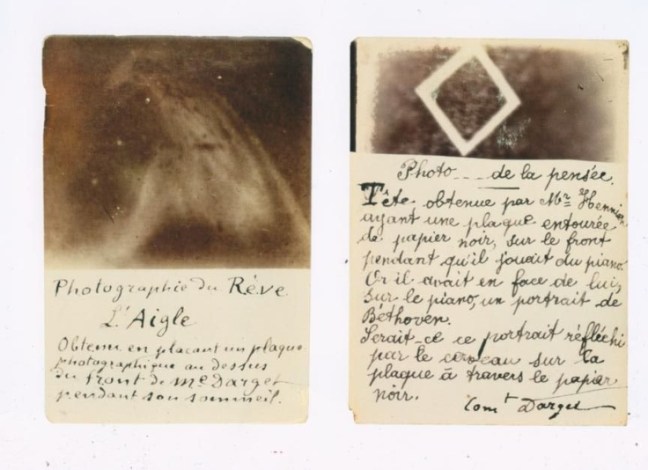 Photographie du Rêve
L'Aigle
Obtenue en placant un plaque
photographique au dessus
du front de Me Darget
pendant son sommeil.
Photo--- de la pensée.
Tête obtenue par Mr Hennier
ayant une plaque entourée
de papier noir, sur le front
pendant qu'il jouait du piano
Or il avait en face de lui,
sur le piano, un portrait de
Béthoven.
Serait-ce ce portrait réfléchi
par le cerveau sur la
plaque à travers le papier
noir.
Comt Darget